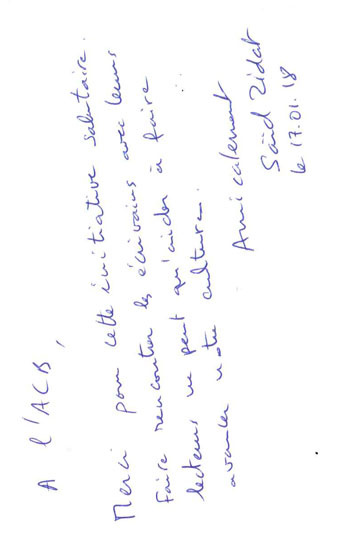 A l'ACB,
Merci pour cette initiative salutaire.
Faire rencontrer les écrivains avec leurs
lecteurs ne peut qu'aider à faire
avancer notre culture.
Amicalement
Saïd Zidat
le 17.01.18